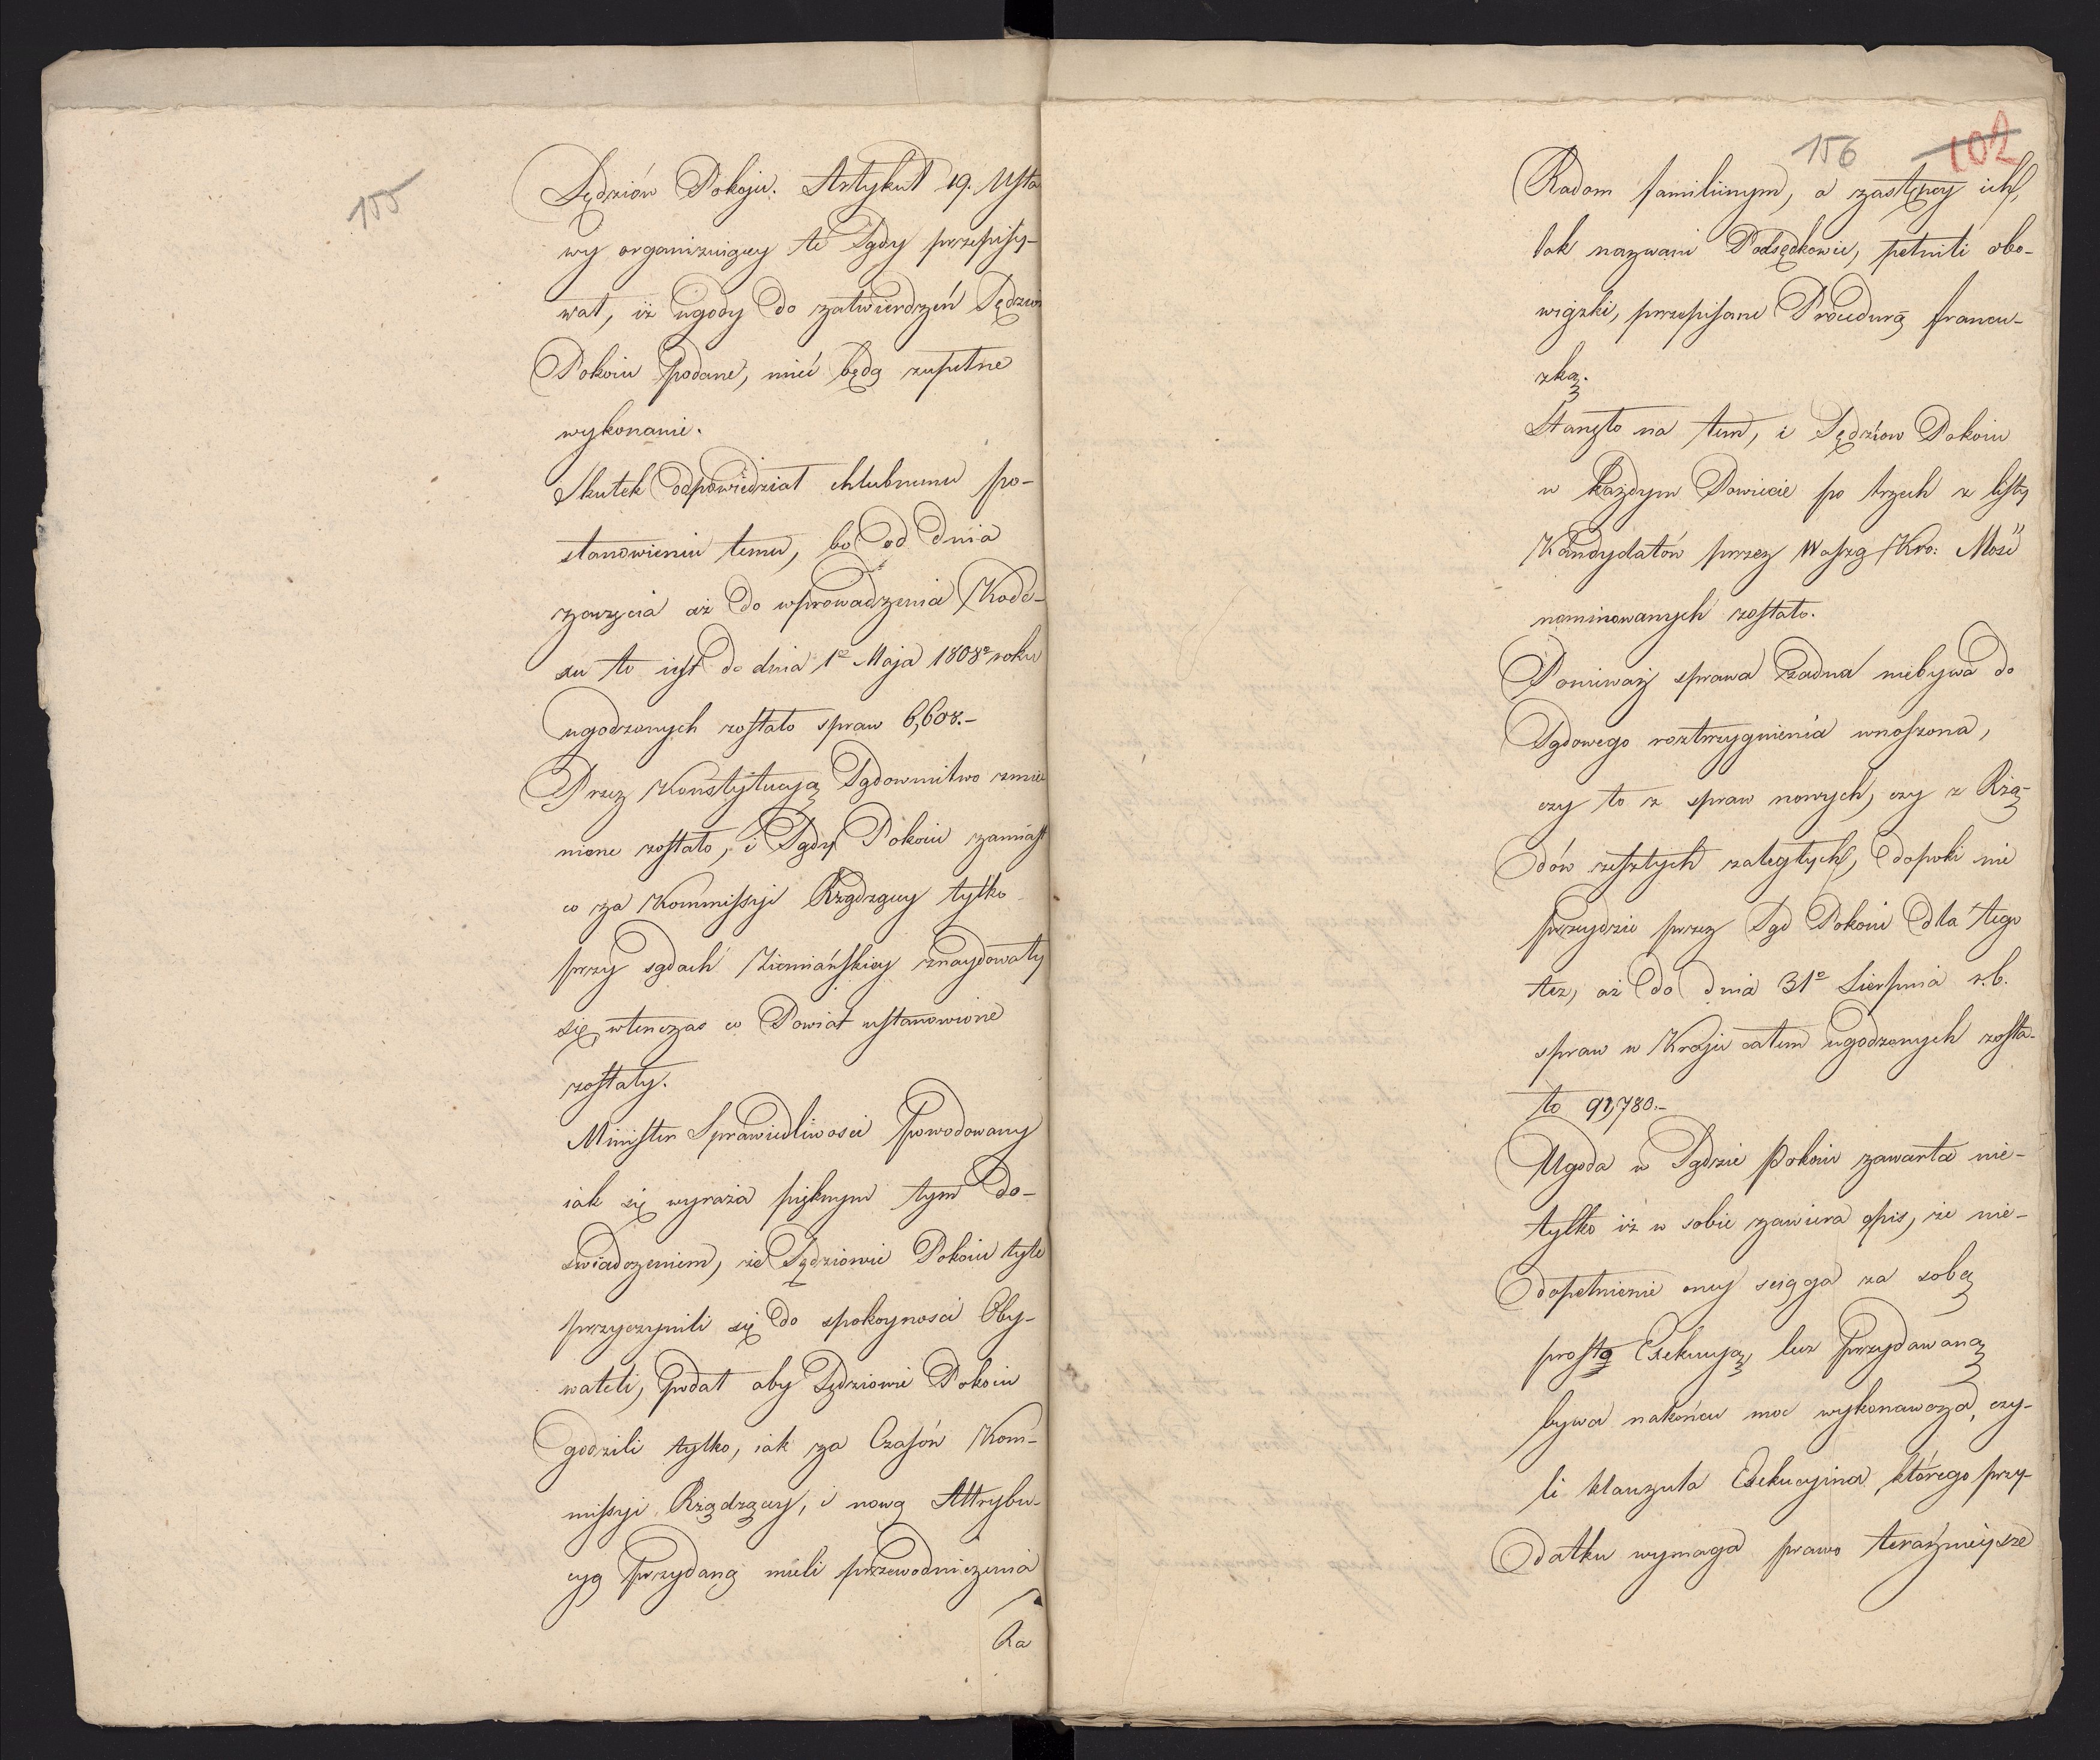 155
Sędziów Pokoju. Artykuł 19. Usta
wy organizuiący te Sądy przepisy-
wał, iż ugody do zatwierdzeń Sędziów
Pokoiu podane, mieć będą zupełne
wykonanie.
Skutek odpowiedział chlubnemu po-
stanowieniu temu, bo od dnia
zaczęcia aż do wprowadzenia Kode-
xu to iest do dnia 1º Maja 1808º roku
ugodzonych zostało spraw 6,608.-
Przez Konstytucyą Sądownictwo zmie
nione zostało, i Sądy Pokoiu zamiast
co za Kommissyi Rządzącey tylko
przy sądach Ziemiańskiey znaydowały
się, wtenczas co Powiat ustanowione
zostały.
Minister Sprawiedliwosci powodowany
iak się wyraża pięknym tym do-
swiadczeniem, że Sędziowie Pokoiu tyle
przyczynili się do spokoynosci Oby-
wateli, podał aby Sędziowie Pokoiu
godzili tylko, iak za Czasów Kom-
missyi Rządzącey, i nową Attrybu-
cyą przydaną mieli przewodniczenia
Ra
156 102
Radom familiinym, a zastępcy ich,
tak nazwani Podsędkowie, pełnili obo-
wiązki, przepisane Procedurą francu-
zką.
Stanęło na tem, i Sędziow Pokoiu
w każdym Powiecie po trzech z listy
Kandydatów przez Waszą Kro: Mość
nominowanych zostało.
Ponieważ sprawa żadna niebywa do
Sądowego roztrzygnienia wnoszona,
czy to z spraw nowych, czy z Rzą-
dów zeszłych zaległych, dopoki nie
przeydzie przez Sąd Pokoiu dla tego
też, aż do dnia 31º Sierpnia r.b.
spraw w Kraju całem ugodzonych zosta-
ło 91,780.-
Ugoda w Sądzie Pokoiu zawarta nie-
tylko iż w sobie zawiera opis, że nie-
dopełnienie oney sciąga za sobą
prostą Exekucyą, lecz przydawaną
bywa nakońcu moc wykonawcza, czy-
li klauzula Exekucyina, którego przy-
datku wymaga prawo teraźnieysze